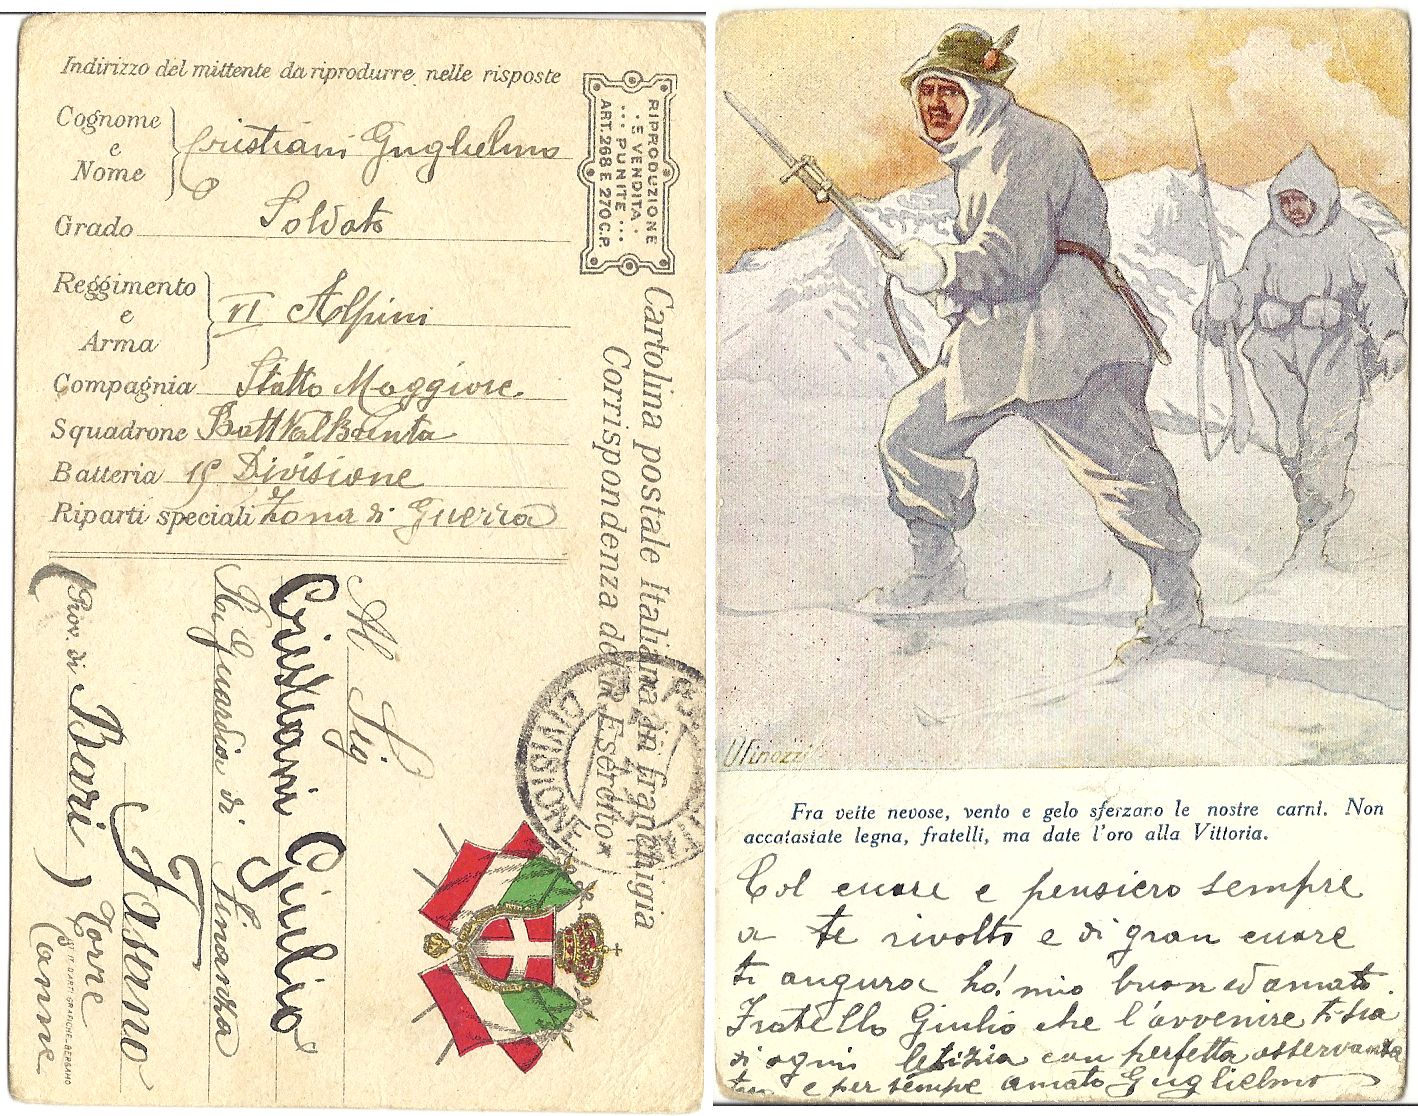 Indirizzo del mittente da riprodurre nelle risposte
Cognome
e
Nome
Cristiani Guglielmo
Grado Soldato
Reggimento
e
Arma
VI Alpini
Compagnia Statto Maggiore
Squadrone Batt Val Brenta
Batteria 15 Divisione
Riparti speciali Zona di Guerra
RIPRODUZIONE
· E VENDITA ·
... PUNITE ...
ART. 268 E 270 C.P.
Cartolina postale Italiana in franchigia
Corrispondenza del R. Esercito
DIVISIONE
Al Sig
Cristiani Giulio
R. Guardia di Finanza
Torre
Canne
Fasano
(Prov. di Bari)
IST. IT. D'ARTI GRAFICHE - BERGAMO
V Finozzi
Fra vette nevose, vento e gelo sferzano le nostre carni. Non
accatastate legna, fratelli, ma date l'oro alla Vittoria.
Col cuore e pensiero sempre
a te rivolto e di gran cuore
ti auguro ho! mio buon ed amato
Fratello Giulio che l'avvenire ti sia
di ogni letizia con perfetta osservanza
e per sempre amato Guglielmo